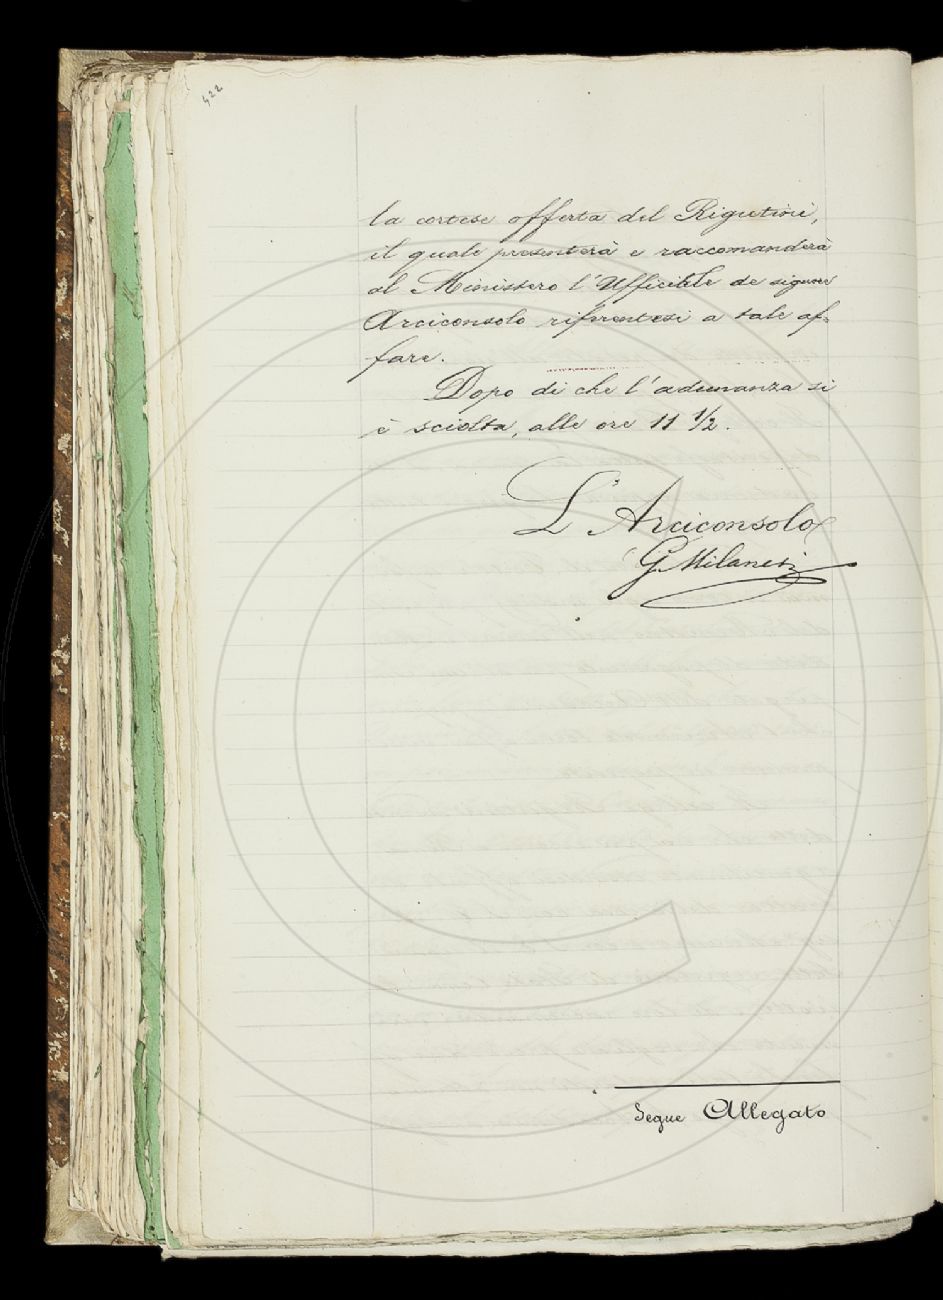 422
la cortese offerta del Rigutini,
il quale presenterà e raccomanderà
al Ministero l'Uffici de signori
Arciconsolo a tale af=
fare.
Dopo di che l'adunanza si
è sciolta, alle ore 11 1/2.
L'Arciconsolo
G. Milanesi
Segue Allegato